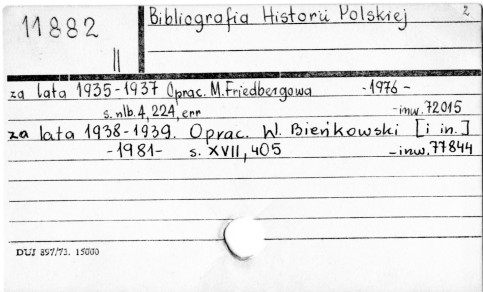 11882
II
Bibliografia Historii Polskiej 2
za lata 1935-1937 Oprac. M. Friedbergowa -1976-
s. nlb. 4, 224, err -inw. 72015
za lata 1938-1939. Oprac. W. Bieńkowski [i in.]
-1981- s. XVII, 405 -inw. 77844
DUI 897/73. 15000